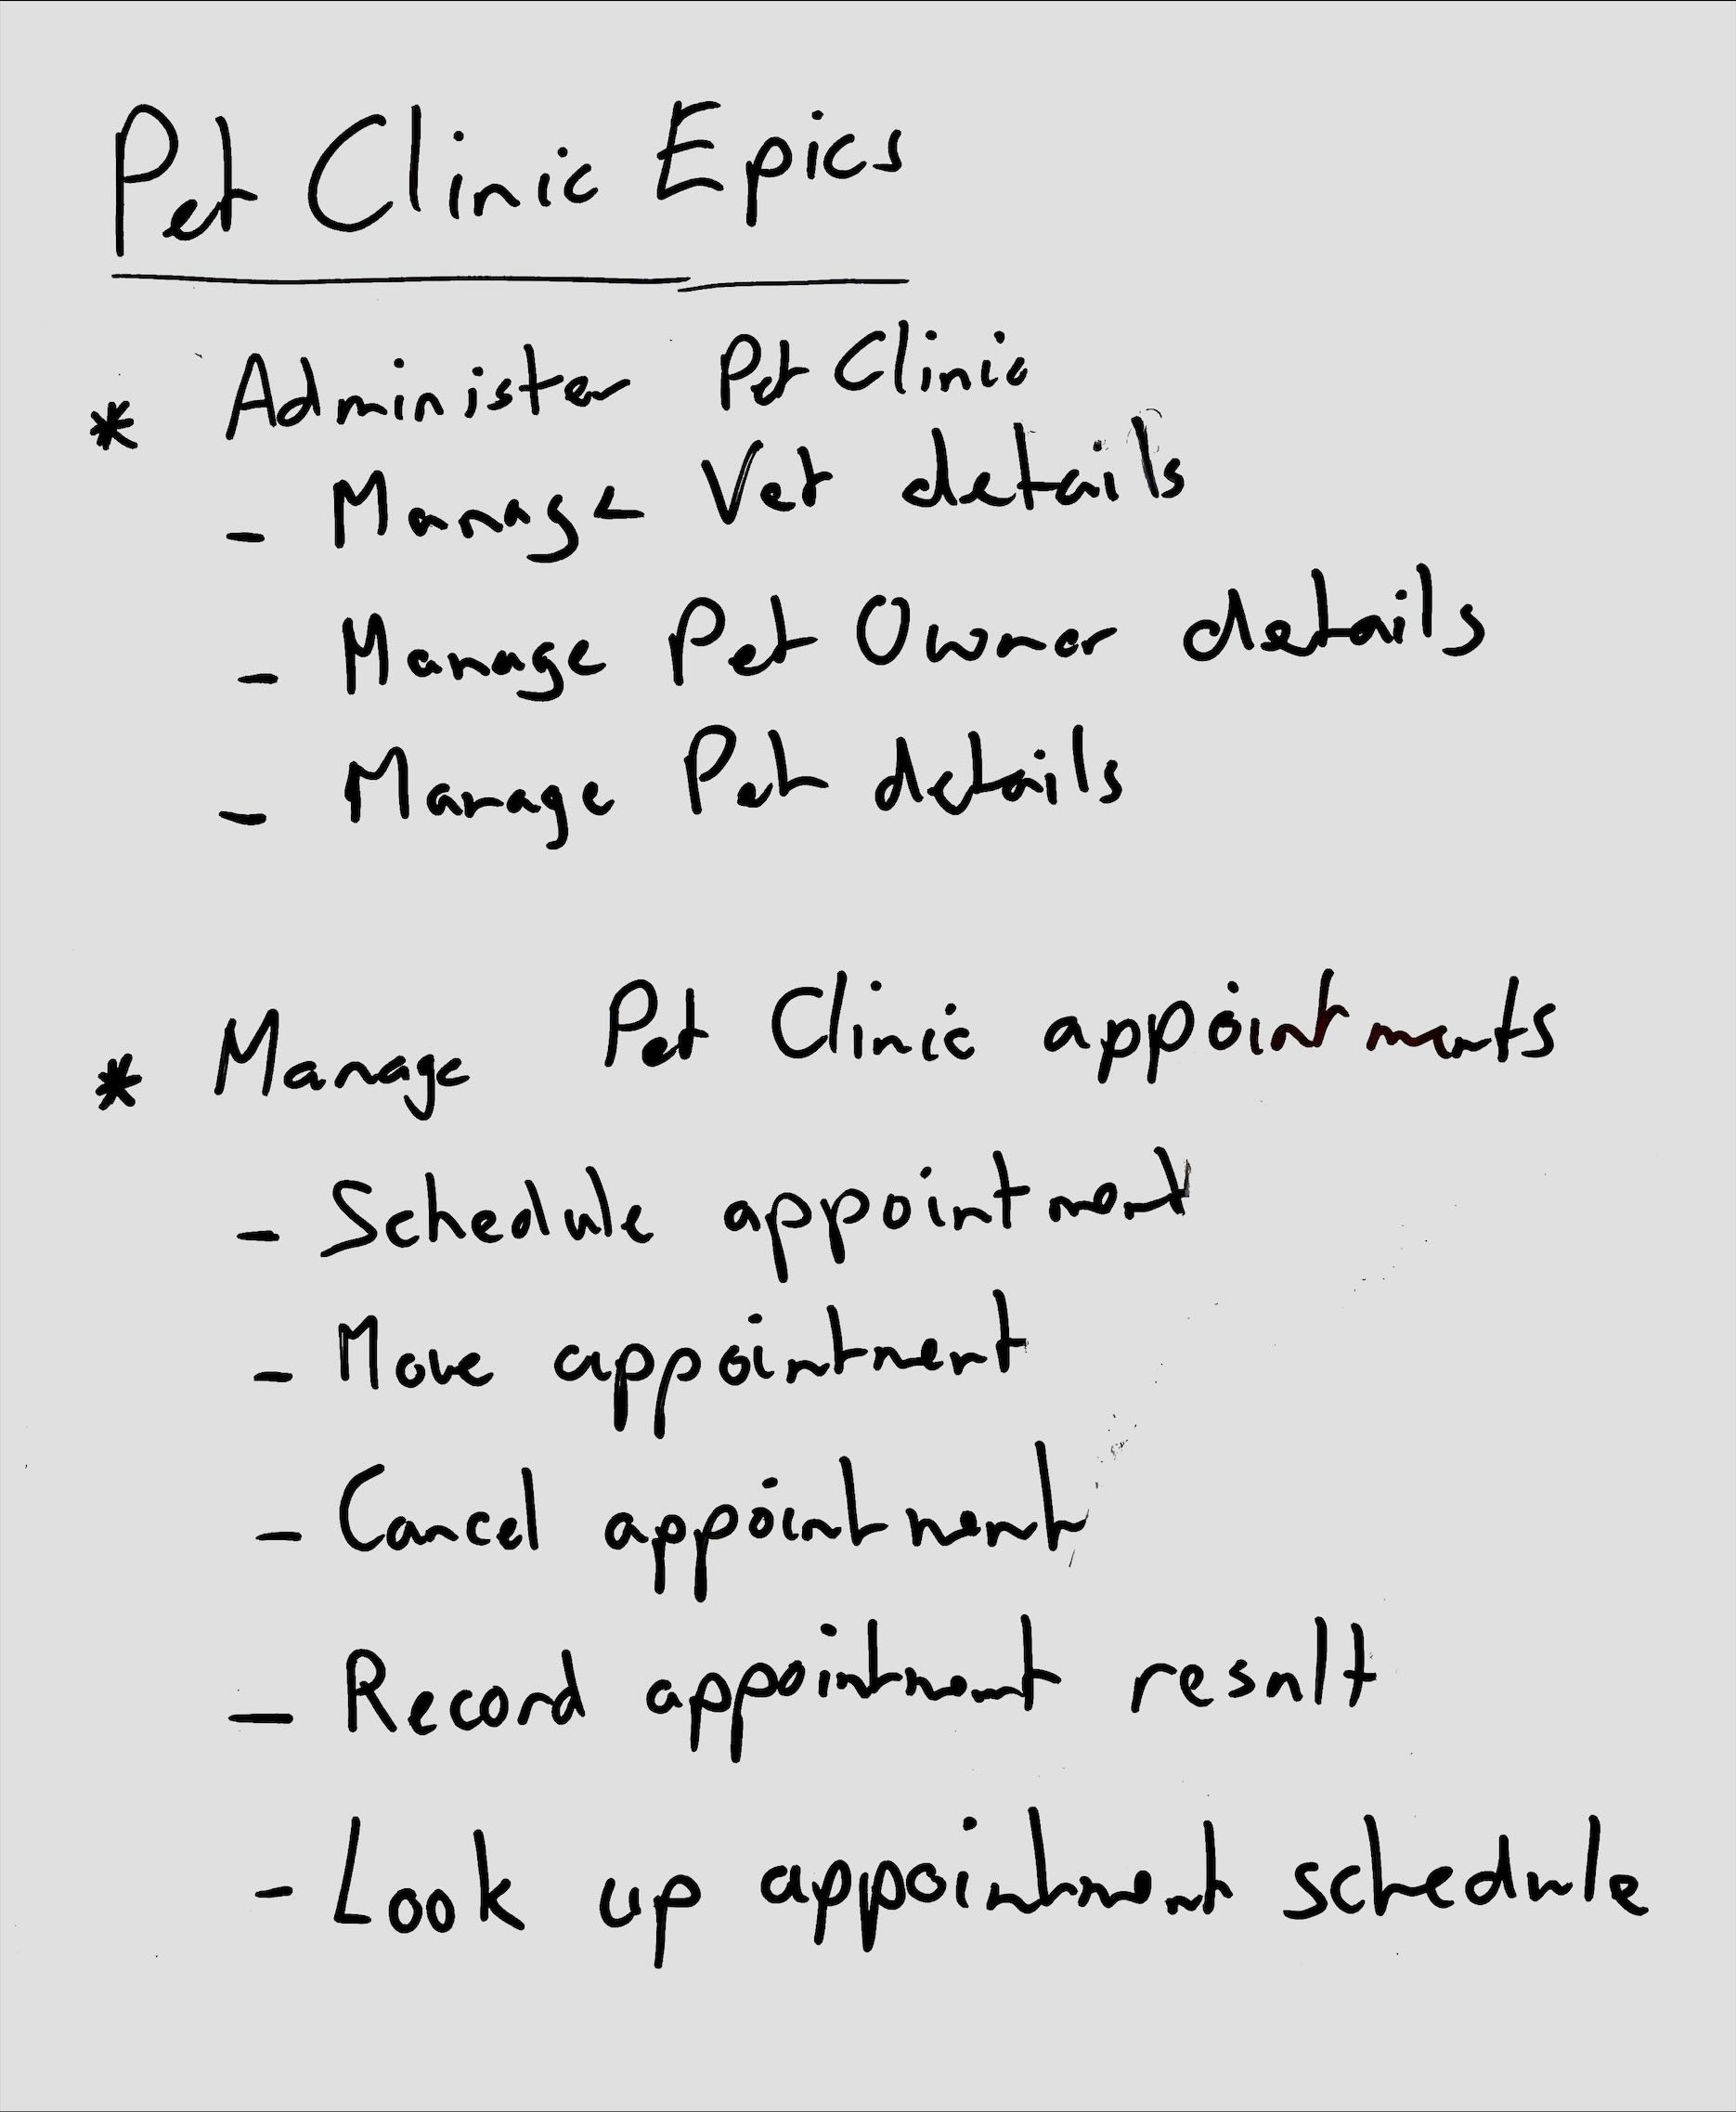 Pet Clinic Epics
* Administer Pet Clinic
- Manage Vet details
- Manage Pet Owner details
- Manage Pet details
* Manage Pet Clinic appointments
- Schedule appointment
- Move appointment
- Cancel appointment
- Record appointment result
- Look up appointment schedule